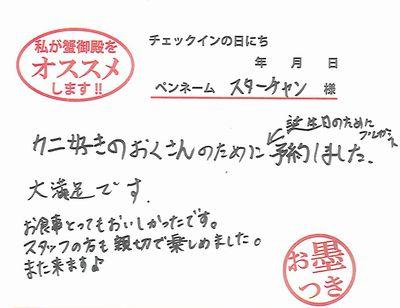 私が蟹御殿を
オススメ
します!!
チェックインの日にち
年 月 日
ペンネーム スターチャン 様
誕生日のために
カニ好きのおくさんのために予約しました。
大満足です。
お食事とってもおいしかったです。
スタッフの方も親切で楽しめました。
また来ます♪
お墨つき